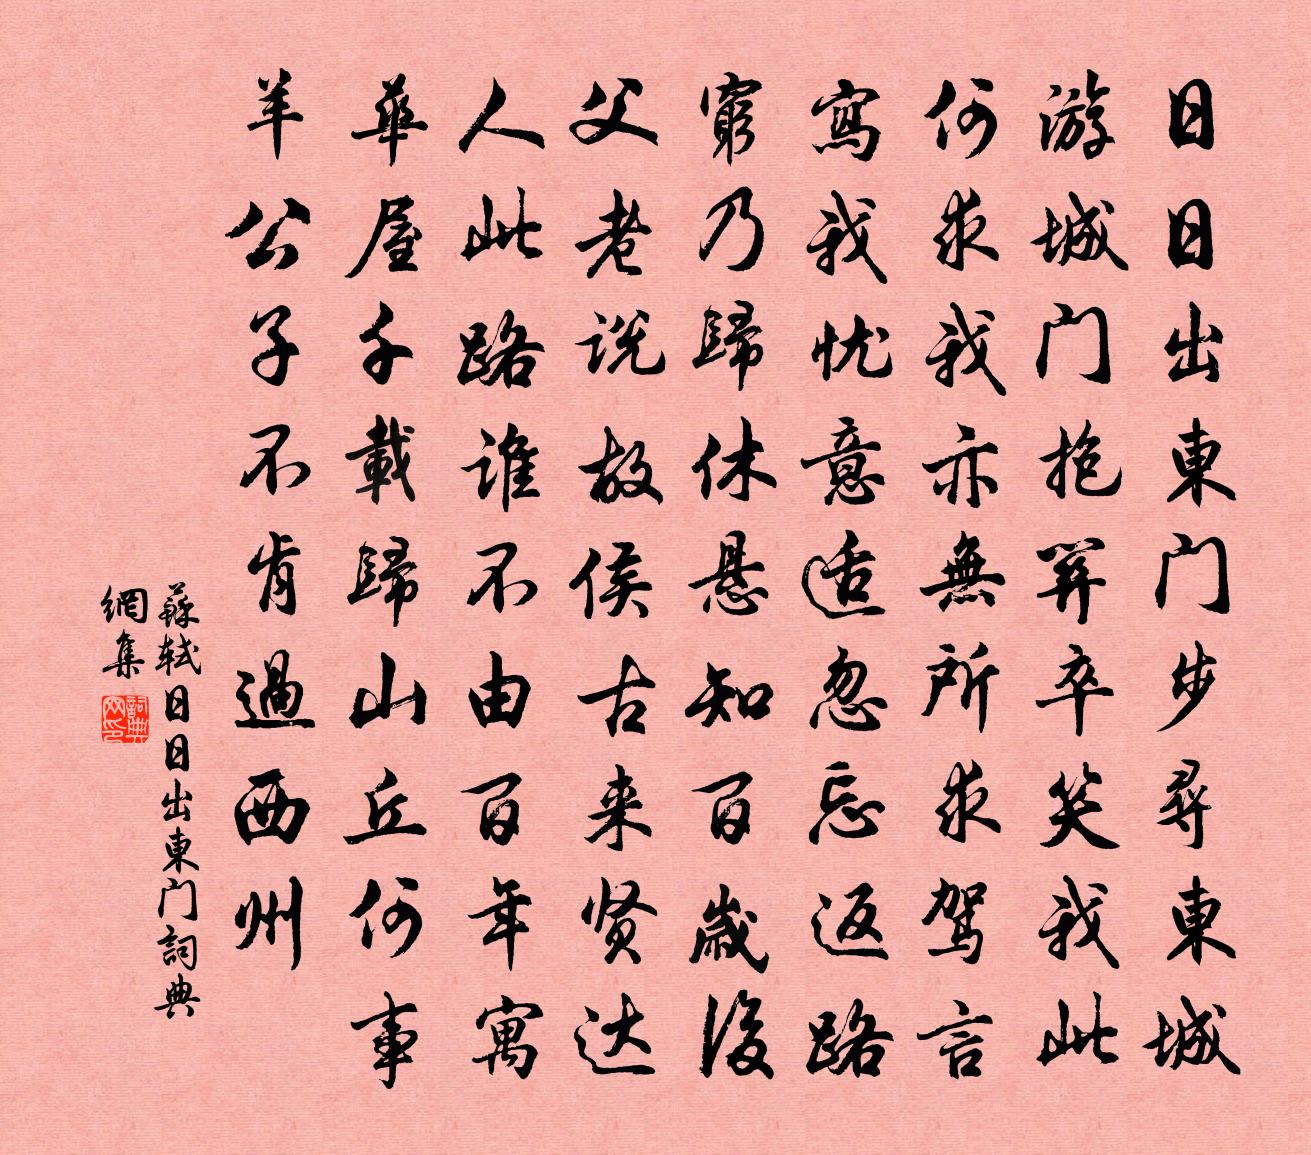 日日出東门步尋東城
游城门抱關卒笑我此
何求我亦無所求駕言
寫我忧意适忽忘返路
窮乃歸休悬知百歲後
父老说故侯古来贤达
人此路谁不由百年寓
華屋千載歸山丘何事
羊公子不肯過西州
蘇軾日日出東门詞典
網集
詞典
网印